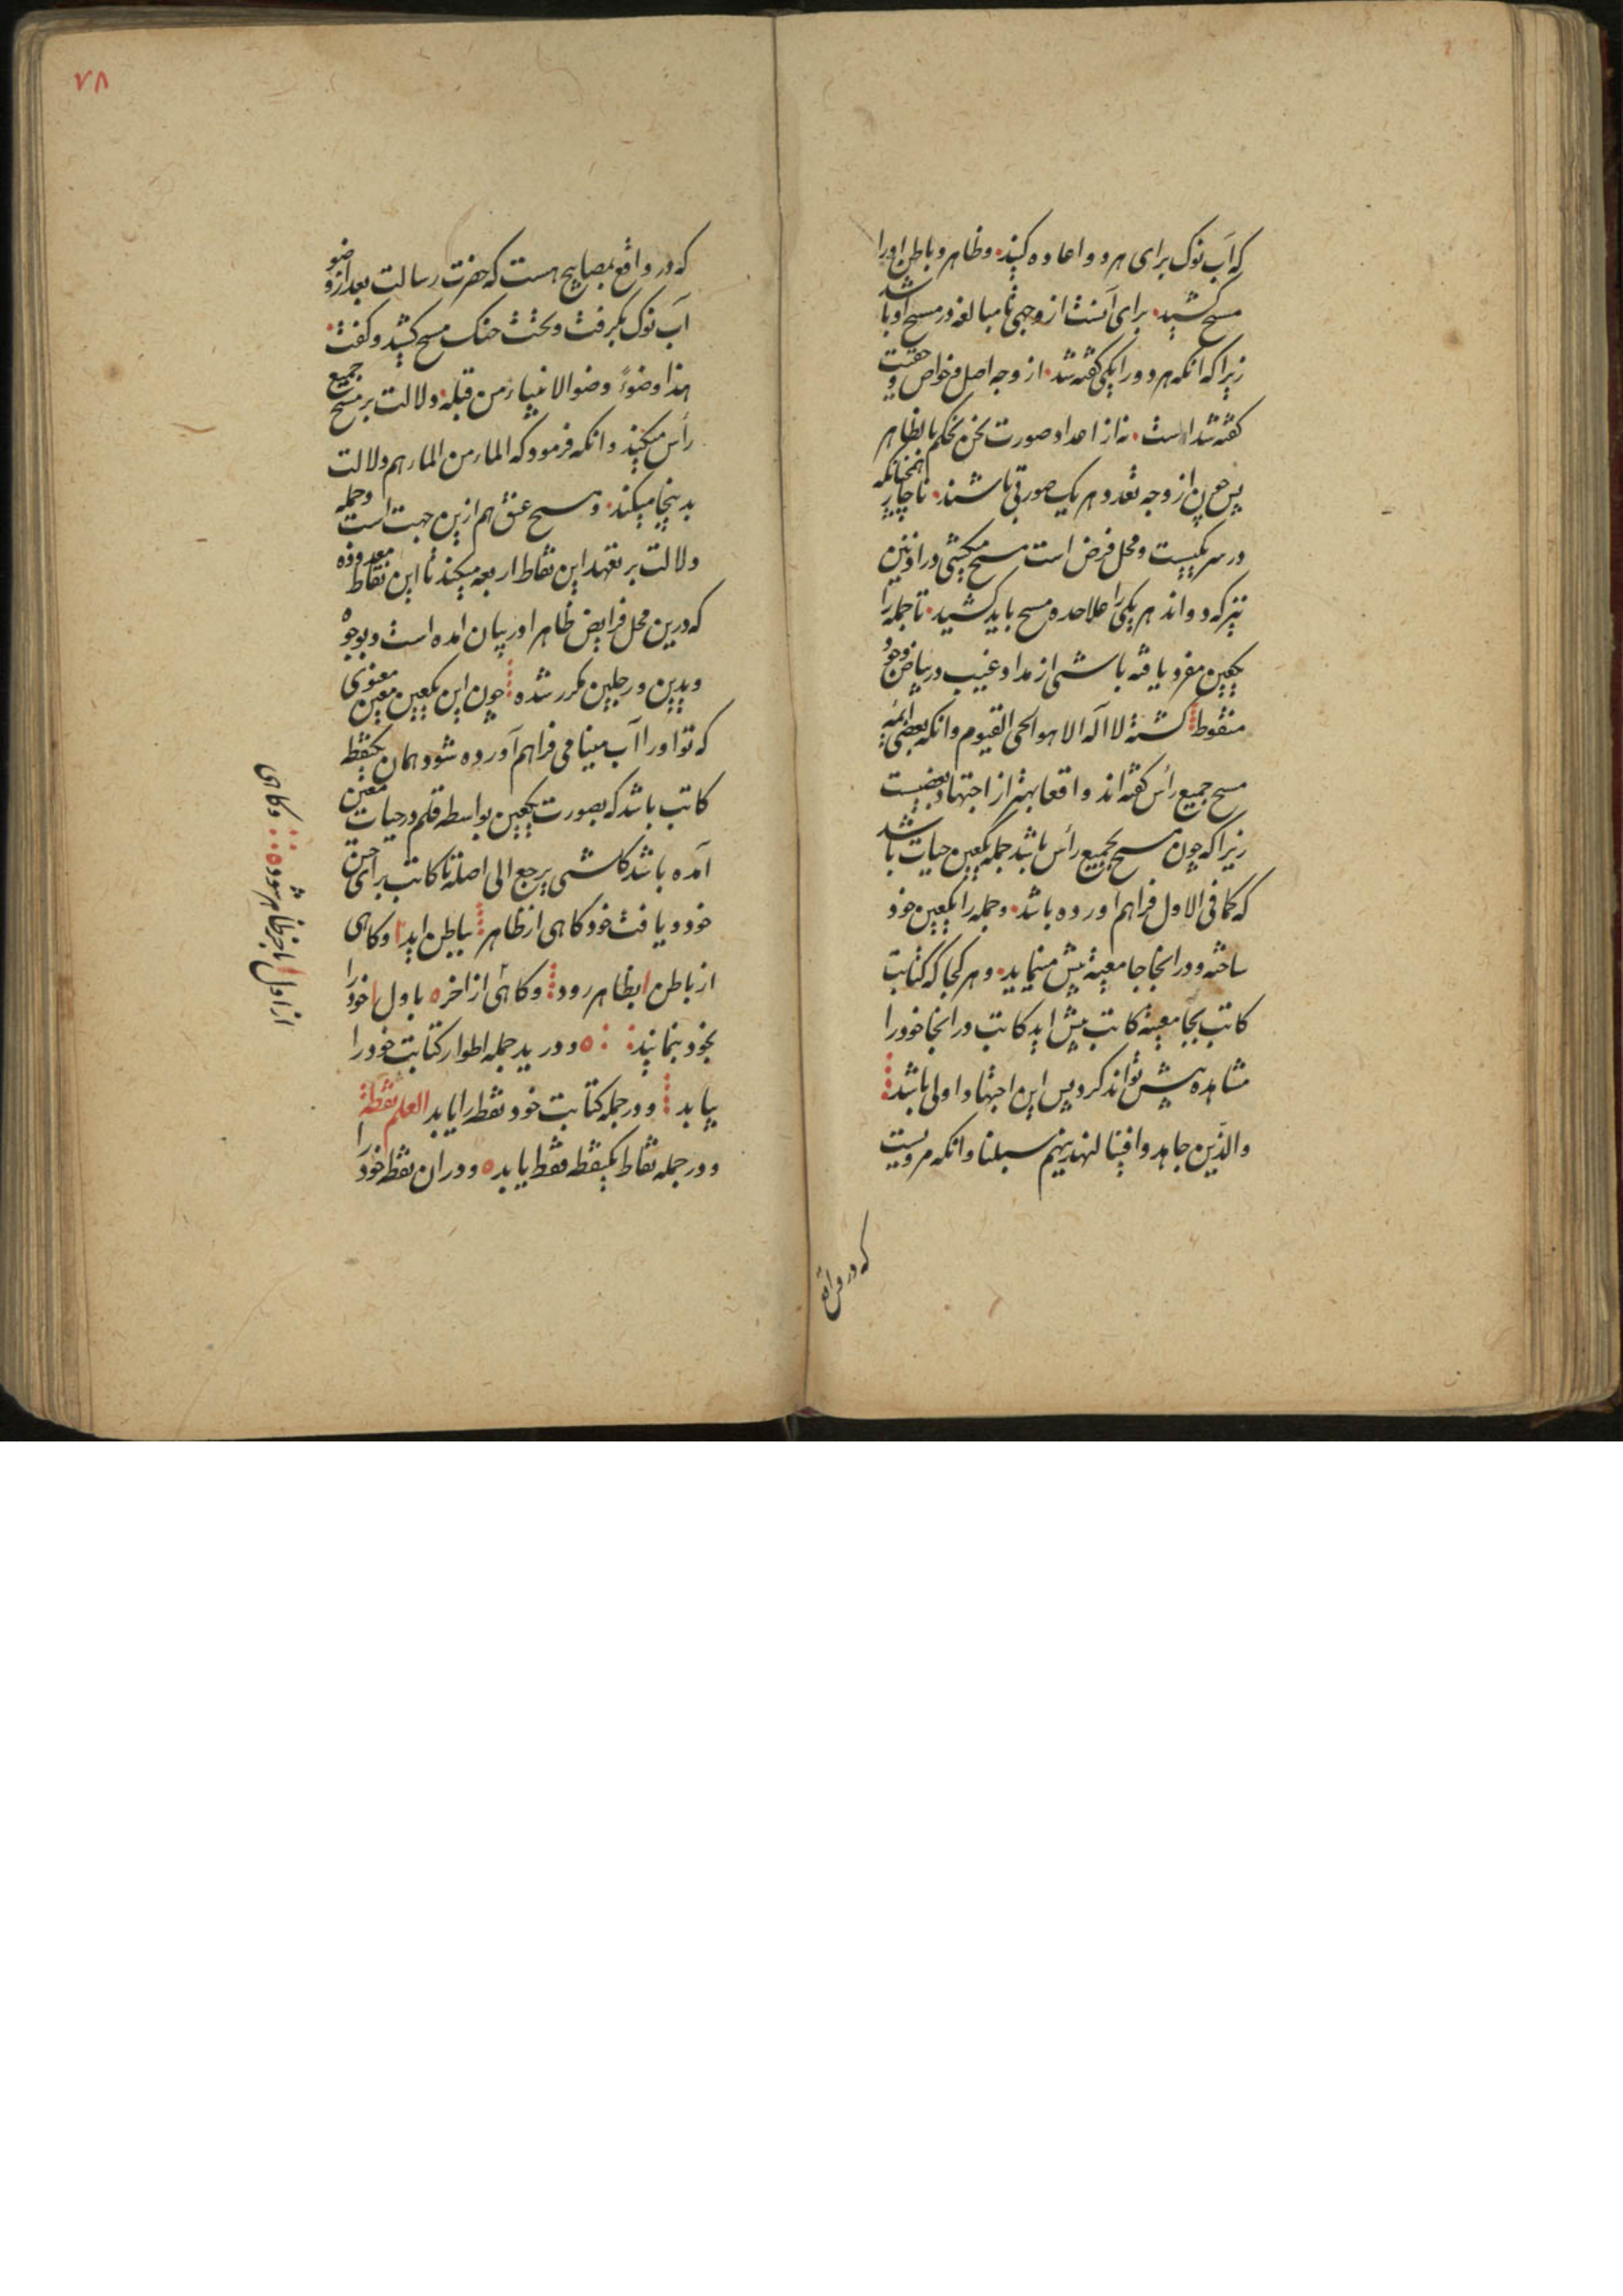 که آب نوک برای هر دو اعاده کنید وظاهر وباطن اورا
مسح کشید برای آنست از وجهی تا مبالغه در مسح او باشد
زیرا که انکه هر دو را یکی کفته شد از وجه اصل وخواص وحقیقت
کفته شد است نه از اعداد صورت نحن نحکم بالظاهر
پس چون از وجه تعدد هر یک صورتی باشند ناچار همچنانکه
در سر یکیست ومحل فرض است مسح میکشی در اذنین
نیز که دواند هر یکی را علاحده مسح باید کشید تا جمله را
بکعین مفرد یافته باشی از مداد غیب در بیاض وجوه
منقوط کشته لا اله الا هو الحی القیوم وانکه بعضی ائمه
مسح جمیع رأس کفته اند واقعا بهتر از اجتهاد بعضیست
زیرا که چون مسح بجمیع رأس باشد جمله بکعین حیات باشد
که کما فی الاول فراهم اورده باشد وجمله را بکعین خود
ساخته ودر انجا جامعیة بیش مینماید وهر کجا که کتابت
کاتب بجامعیة کاتب بیش اید کاتب در انجا خود را
مشاهده بیش تواند کرد پس این اجتهاد اولی باشد
والذین جاهدوا فینا لنهدینهم سبلنا وانکه مرویست
که در واقع
۷۸
که در واقع بمصابیح هست که حضرت رسالت بعد از وضو
آب نوک بکرفت وبتحت حنک مسح کشید وکفت
هذا وضوءٔ وضو الانبیاء من قبله دلالت بر مسح جمیع
رأس میکند وانکه فرمود که الماء من الماء هم دلالت
بدینجا میکند ومسح عنق هم ازین جهت است وجمله
دلالت بر تعهد این نقاط اربعه میکند تا این نقاط معدوده
که درین محل فرایض ظاهرا در بیان امده است وبوجوه
ویدین ورجلین مکرر شده چون این بکعین معین معنوی
که تو اورا آب مینامی فراهم آورده شود همان یکنقطه
کاتب باشد که بصورت بکعین بواسطه قلم در حیات معین
آمده باشد کل شی یرجع الی اصله تا کاتب برای حسن
خود ویافت خود کاهی از ظاهر بباطن اید وکاهی
از باطن بظاهر رود وکاهی از اخر باول خود را
بخود بنماید ودر ید جمله اطوار کتابت خود را
بیابد ودر جمله کتابت خود نقطه را یابد العلم نقطة
ودر جمله نقاط یکنقطه فقط یابد ودران نقطه خود را
وکاهی
از اول باخر ظاهر شود